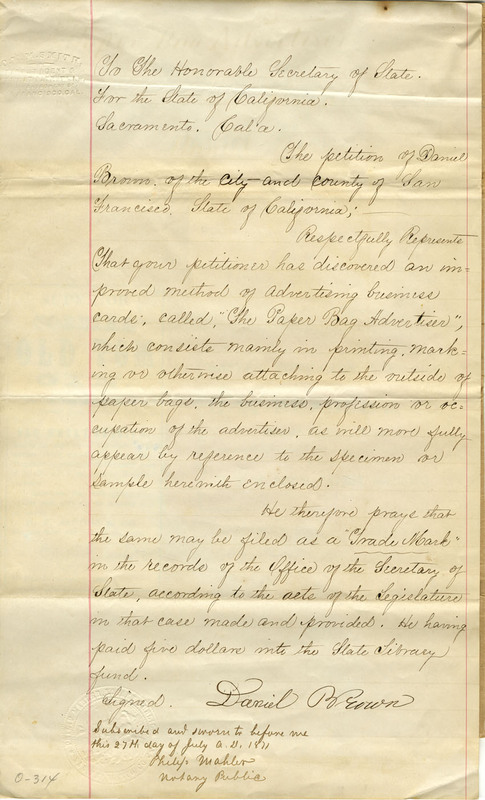 To The Honorable Secretary of State.
For the State of California.
Sacramento. Cal'a.
The petition of Daniel
Brown, of the city and county of San
Francisco, State of California;
Respectfully Represents
That your petitioner has discovered an im=
proved method of advertising business
cards, called, "The Paper Bag Advertiser",
which consists mainly in printing, mark=
ing or otherwise attaching to the outside of
paper bags, the business, profession or oc=
cupation of the advertiser, as will more fully
appear by reference to the specimen or
sample herewith enclosed.
He therefore prays that
the same may be filed as a "Trade Mark"
in the records of the Office of the Secretary of
State, according to the acts of the Legislature
in that case made and provided. He having
paid five dollars into the State Library
fund.
Signed. Daniel Brown
Subscribed and sworn to before me
this 27th day of July A.D. 1871
Philip Mahler
Notary Public
0-314